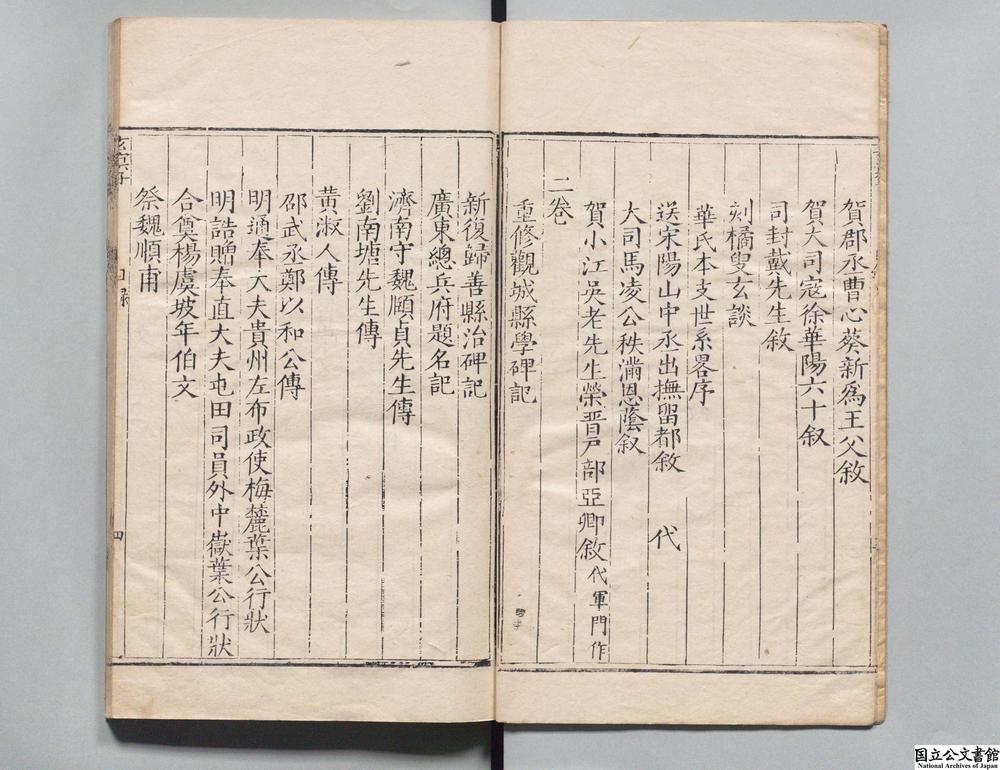 賀郡丞曹心葵新爲王父敘
賀大司寇徐華陽六十叙
司封戴先生敘
刻橘叟玄談
華氏本支世系畧序
送宋陽山中丞出撫留都敘　代
大司馬凌公秩滿恩蔭叙
賀小江吳老先生榮晋戸部亞卿敘代軍門作
二卷
重修觀城縣學碑記
新復歸善縣治碑記
廣東總兵府題名記
濟南守魏順貞先生傳
劉南塘先生傳
黃淑人傳
邵武丞鄭以和公傳
明通奉大夫貴州左布政使梅麓葉公行狀
明誥贈奉直大夫屯田司員外中嶽葉公行狀
合奠楊虞坡年伯文
祭魏順甫
目錄
四
国立公文書館
National Archives of Japan